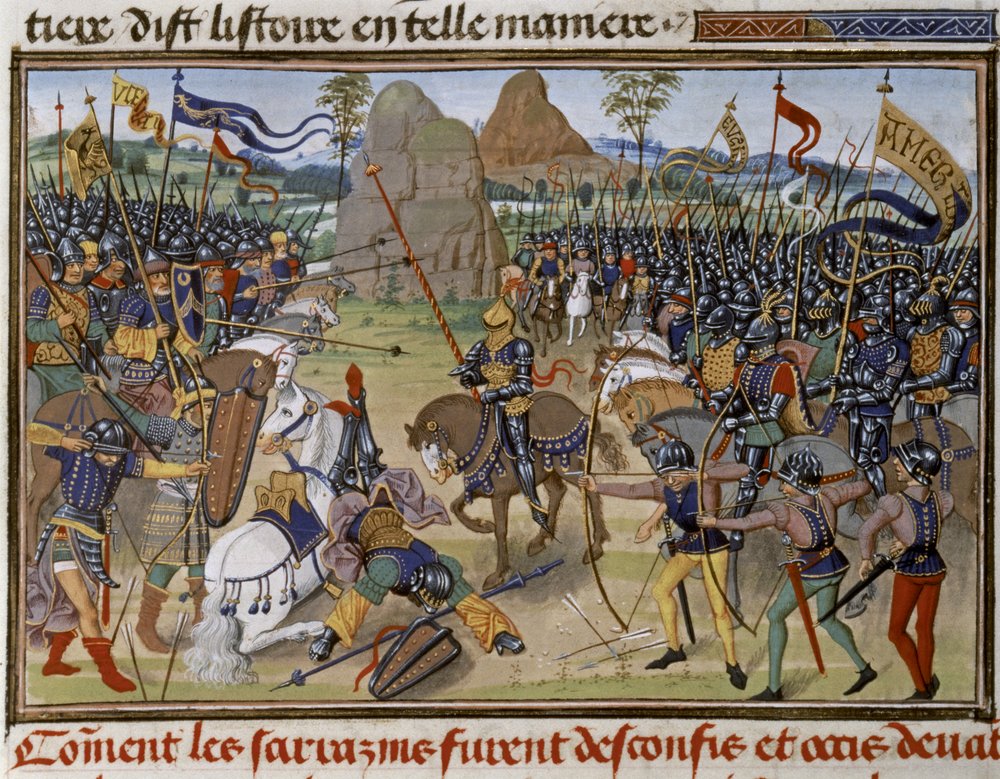 tiere dist listoire en telle maniere
VICT
ENGEN
AMER
Com̄ent les sarrazins furent desconfis et occis devāt